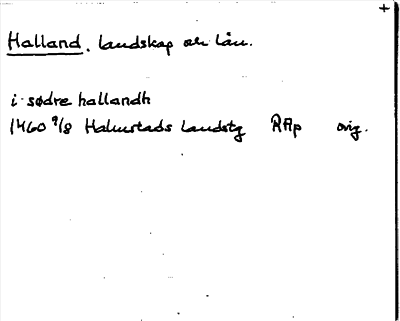 +
Halland. landskap och län.
i sødre hallandh
1460 9/8 Halmstads landstg RAp orig.